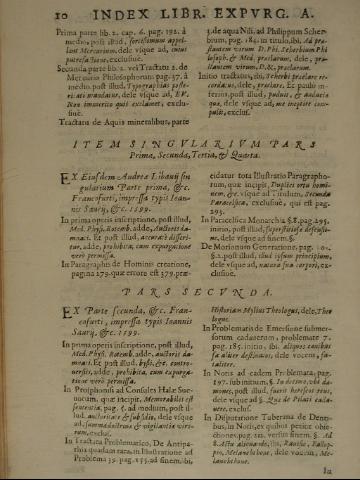 10 INDEX LIBR. EXPVRG. A.
Prima parte lib. 2. cap. 6. pag. 192. à
medio, post illud, fortissimum appel
lant Mercurium, dele vsque ad,
exclusiuè.
Secunda parte lib. 2. vel Tractatu 2. de
Mercurio Philosophorum pag. 37. à
medio, post illud, Typographias poste-
dele vsque ad,
Non immerito quis exclamet, exclu-
siuè.
Tractatu de Aquis mineralibus, parte
3. de aqua Nili, ad Philippum Scher-
bium, pag. 184. in titulo, ibi, Ad præ-
stantem virum D. Ph. Scherbium Phi
losoph. & Med. præclarum, dele, præ-
stantem virum, D. &, præclarum.
Initio tractatus, ibi, Scherbi præclare re-
cordaris, dele, præclare. Et paulò in-
ferius, post illud, pudent, & audacia
qua, dele vsque ad, me ineptire com-
pulit, exclus.
ITEM SINGVLARIVM PARS
Prima, Secunda, Tertia, & Quarta.
EX Eiusdem Andreæ Libauij sin
gularium Parte prima, &c.
Francofurti, impressa typis Ioan-
nis Saurij, &c. 1599.
In prima operis inscriptione, post illud,
Med. Phys. Rotemb. adde, Auctoris da-
mnati. Et post illud, accuratè disseri-
tur, adde, prohibita, cum expurgatione
verò permissa.
In Paragraphis de Hominis creatione,
pagina 279. quæ errore est 379. præ-
cidatur tota Illustratio Paragrapho-
rum, quæ incipit, Duplex ortus homi-
num, &c. vsque ad Titulum, Secunda
Paracelsica, exclusiuè, qui est pag.
295.
In Paracelsica Monarchia §. 8. pag. 295.
initio, post illud, superstitiosa defensio-
ne, dele vsque ad finem §.
De Morionum Generatione, pag. 10.
§. 2. post illud, illud ipsum principium,
dele vsque ad, natura sua corpori, ex-
clusiuè.
PARS SECVNDA.
EX Parte secunda, &c. Fran-
cofurti, impressa typis Ioannis
Saurij, &c. 1599.
In prima operis inscriptione, post illud,
Med. Phys. Rotemb. adde, Auctoris da-
mnati. Et post illud, hyst. &c. contro-
uersis, adde, prohibita, cum expurga-
tione verò permissa.
In Prosiphonia ad Consules Halæ Sue-
uorum, quæ incipit, Memorabilis est
sententia, pag. 5. ad medium, post il-
lud, auctoritate & subsidio, dele vsque
ad, summa dulcedine & vigilantia viro-
rum, exclus.
In Tractatu Problematico, De Antipa-
thia quadam rara, in Illustratione ad
Problema 39. pag. 155. ad finem, ibi,
Historiam Mylius Theologus, dele, Theo
logus.
In Problematis de Emersione submer-
sorum cadauerum, problemate 7.
pag. 185. initio, ibi, aliquos cautibus
sa aliter destinatos, dele vocem, fa-
taliter.
In Notis ad eadem Problemata, pag.
197. sub initium, §. In decimo, vbi da-
mones, post illud, fuerit hæresis reus,
dele vsque ad §. Quæ de Pilati calue-
nere, exclus.
In Disputatione Tuberana de Denti-
bus, in Notis, ex quibus petitæ obie-
ctiones, pag. 212. versus finem, §. Ad
8. Acta alicunde, ibi, Ruuisse, Fallop-
pio, Melanchthone, dele vocem, Me-
lanchthone.
In